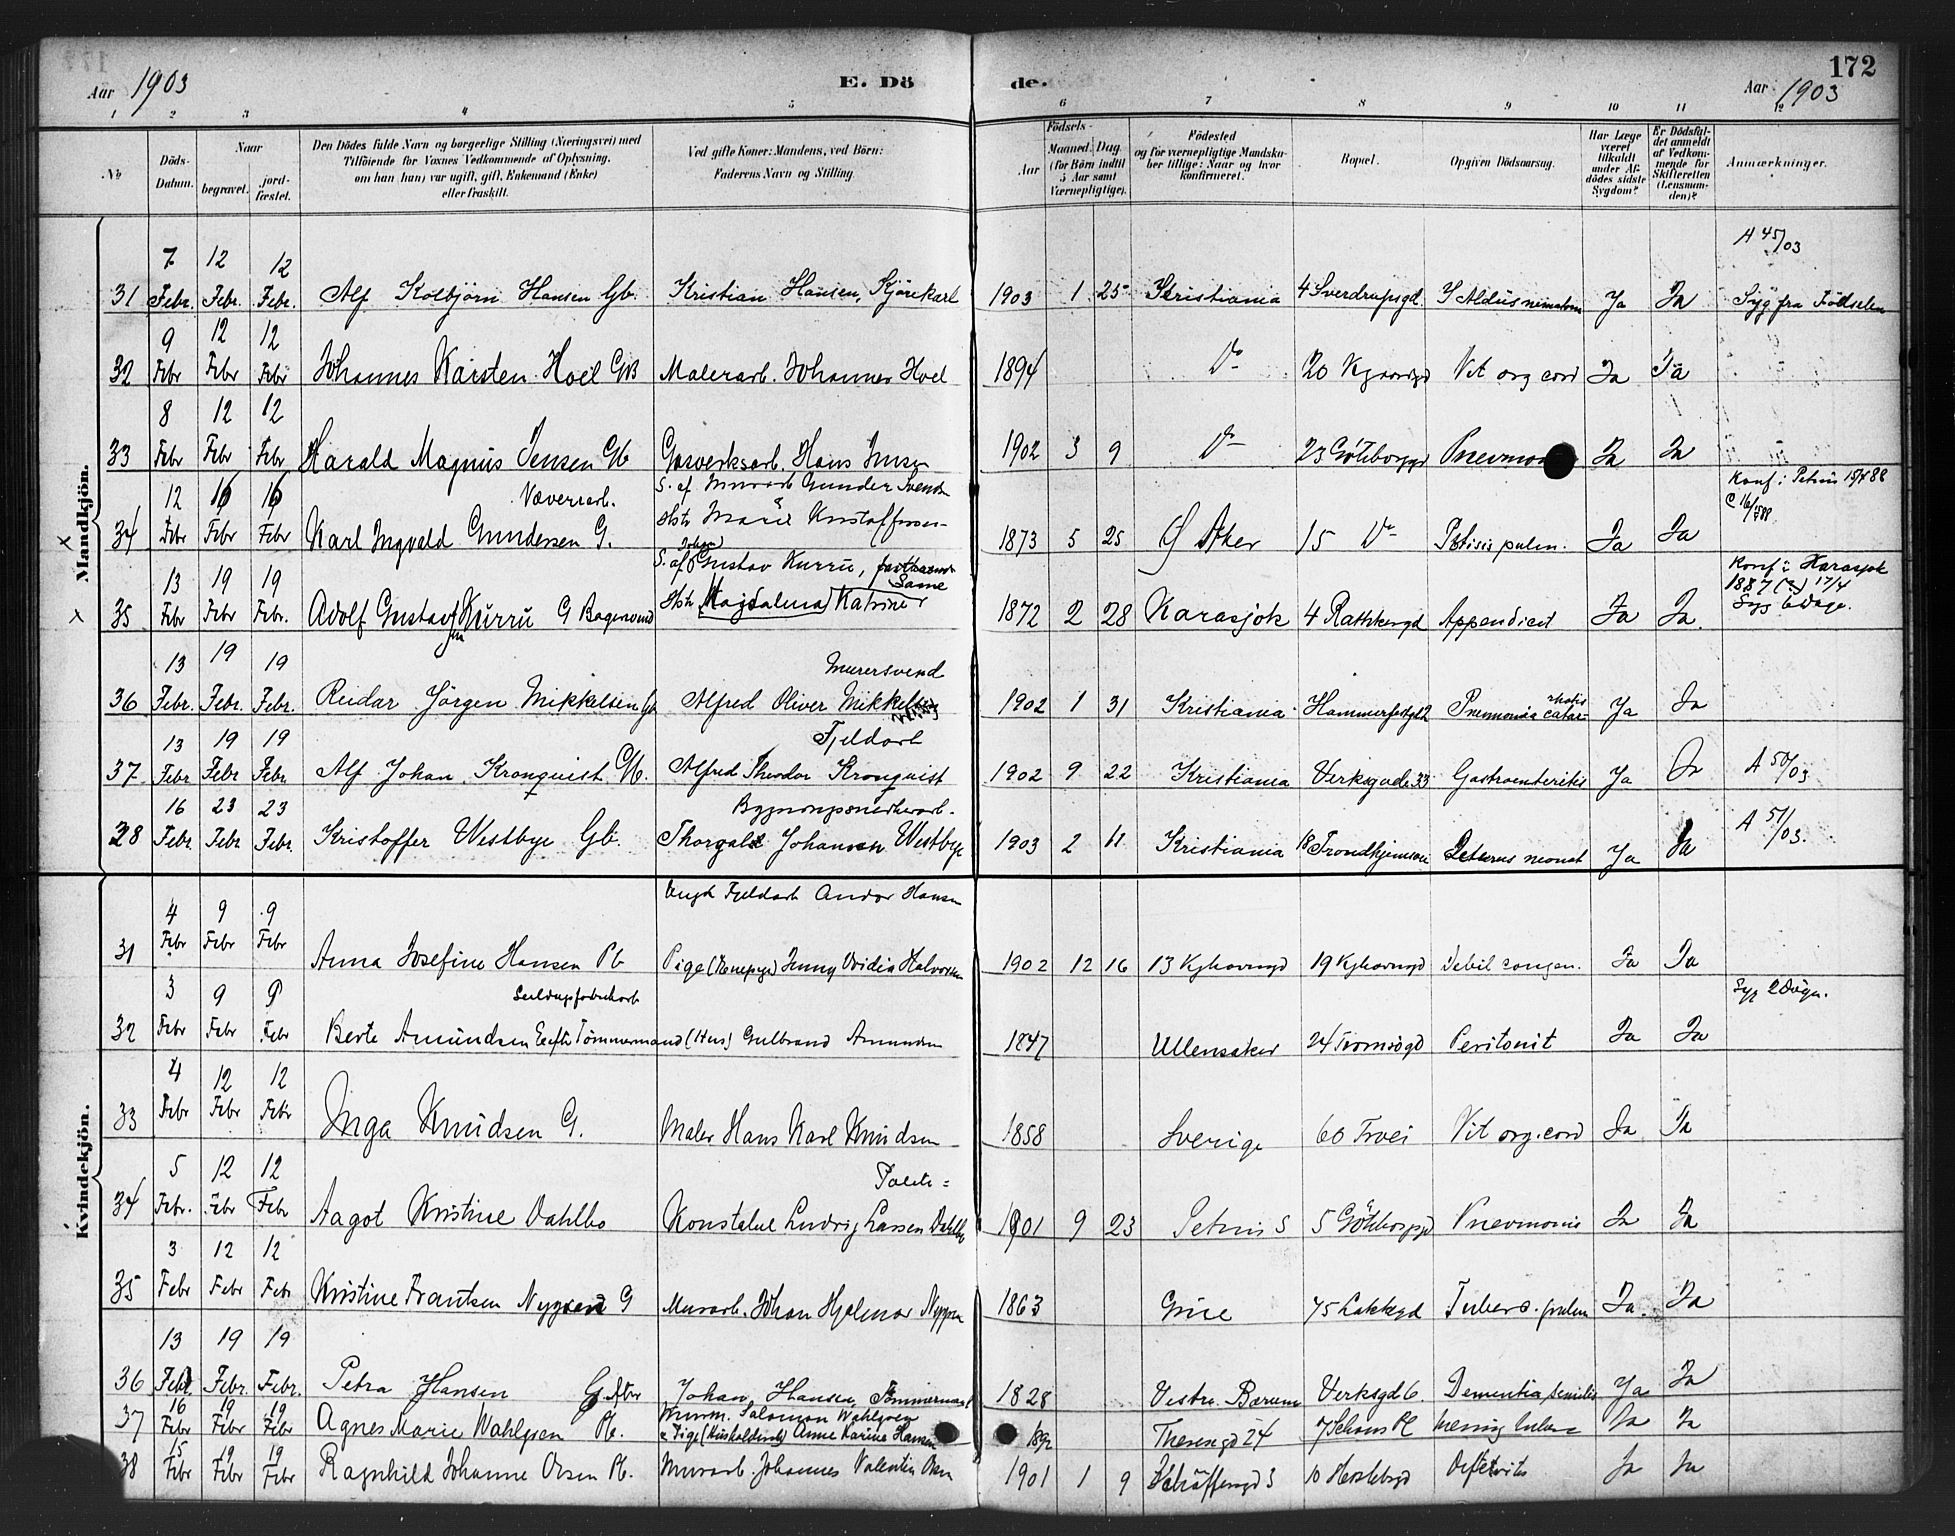 172
Aar 1903
E. Dö
de.
Aar 1903
1 2 3 4 5 6 7 8 9 10 11 12
No
Döds-Datum.
Naar
begravet.
jord-fæstet.
Den Dödes fulde Navn og borgerlige Stilling (Næringsvei) med
Tilföiende for Voxnes Vedkommende af Oplysning,
om han (hun) var ugift, gift, Enkemand (Enke)
eller fraskilt.
Ved gifte Koner: Mandens, ved Börn:
Faderens Navn og Stilling
Födsels-
Aar
Maaned. Dag
(for Börn indtil
5 Aar samt
Værnepligtige).
Födested
og for værnepligtige Mandska-
ber tillige: Naar og hvor
konfirmeret.
Bopæl.
Opgiven Dödsaarsag.
Har Læge
været
tilkaldt
under Af-
dödes sidste
Sygdom?
Er Dödsfal-
det anmeldt
af Vedkom-
mende for
Skifteretten
(Lensman-
den)?
Anmærkninger.
Mandkjön.
A 45/03
7 12 12
31 Febr. Febr. Febr. Alf Kolbjörn Hansen Gb. Kristian Hansen, Kjörekarl 1903 1 25 Kristiania 4 Sverdrupsgd. Ja Ja Syg fra Födselen
9 12 12
32 Febr Febr Febr Johannes Karsten Hoel Gb Malerarb. Johannes Hoel 1894 Do 20 Vit org cord Ja Ja
8 12 12
33 Febr Febr Febr Harald Magnus Jensen Gb Gasverksarb. Hans Jensen 1902 3 9 Do 23 Göteborggd Ja Ja
12 16 16 Væverarb. S. af Murarb Gunder Svends Konf. i Petrus 15/4 88
34 Febr Febr Febr Karl Ingvald Gundersen G. Hstr Marie Kristoffersen 1873 5 25 Ø Aker 15 Do Ptisis pulm. Ja Ja
13 19 19 Johan S. af Gustav Kurru, Same Konf i Karasjok
1887 (?) 17/4
35 Febr Febr Febr. Adolf Gustav Kurru G Bagersvend Hstr Magdalena Katrine 1872 2 28 Karasjok 4 Rathkesgd Appendicit Ja Ja. Syg 6 Dage.
13 19 19 Murersvend
36 Febr. Febr. Febr. Reidar Jörgen Mikkelsen Gb Alfred Oliver Mikkelsen 1902 1 31 Kristiania Hammerfestgt 2 Pneumonia catar- Ja Ja
13 19 19 Fjeldarb
37 Febr Febr Febr. Alf Johan Kronquist Gb. Alfred Theodor Kronquist 1902 9 22 Kristiania Verksgade 33 Gastroenteritis Ja Ja A 50/03
16 23 23
38 Febr. Febr Febr. Kristoffer Westbye Gb. Thorvald Johansen Westbye 1903 2 11 Kristiania 18 Trondhjemsvei neonat Ja Ja A 51/03.
Kvindekjön.
Ungk Fjeldarb Andor Hansen
4 9 9
31 Febr Febr Febr Anna Josefine Hansen Pb Pige Jenny Halvorsen 1902 12 16 13 Kjhavngd 19 Kjhavngd Debil congen. Ja Ja
3 9 9 Syg 2 Dage.
32 Febr Febr Febr Berte Amundsen Eefter Tömmermand (Hus) Gulbrand Amundsen 1847 Ullensaker 24 Tromsögd Peritonit Ja Ja
4 12 12
33 Febr Febr Febr Inga Knudsen G. Maler Hans Karl Knudsen 1858 Sverige 60 Trvei Vit org. cord Ja Ja
5 12 12
34 Febr. Febr Febr Aagot Kristine Dahlbo Konstabel Ludvig Lassen Dahlbo 1901 9 23 Petrus S 5 Göteborggd Pnevmonie Ja Ja
3 12 12
35 Febr Febr Febr Kristine Frantsen Nygren G Murarb. Johan Hjalmar Nygren 1863 Grue 75 Lakkegd Tuberc. pulm Ja. Ja
13 19 19
36 Febr. Febr. Febr. Petra Hansen G. Efter Johan Hansen, Tömmermand 1828 Vestre Bærum Verksgd 6. Dementia senilis Ja Ja
16 19 19 Murm. Salomon Wahlgren
37 Febr Febr Febr Agnes Marie Wahlgren Pb. Pige Anne Karine Hansen 1892 Theresegd 24 7 Schous Pl mening tuberc Ja Ja
15 19 19
38 Febr Febr Febr Ragnhild Johanne Olsen Pb. Murarb. Johannes Valentin Olsen 1901 1 9 10 Herslebsgd Ja Ja